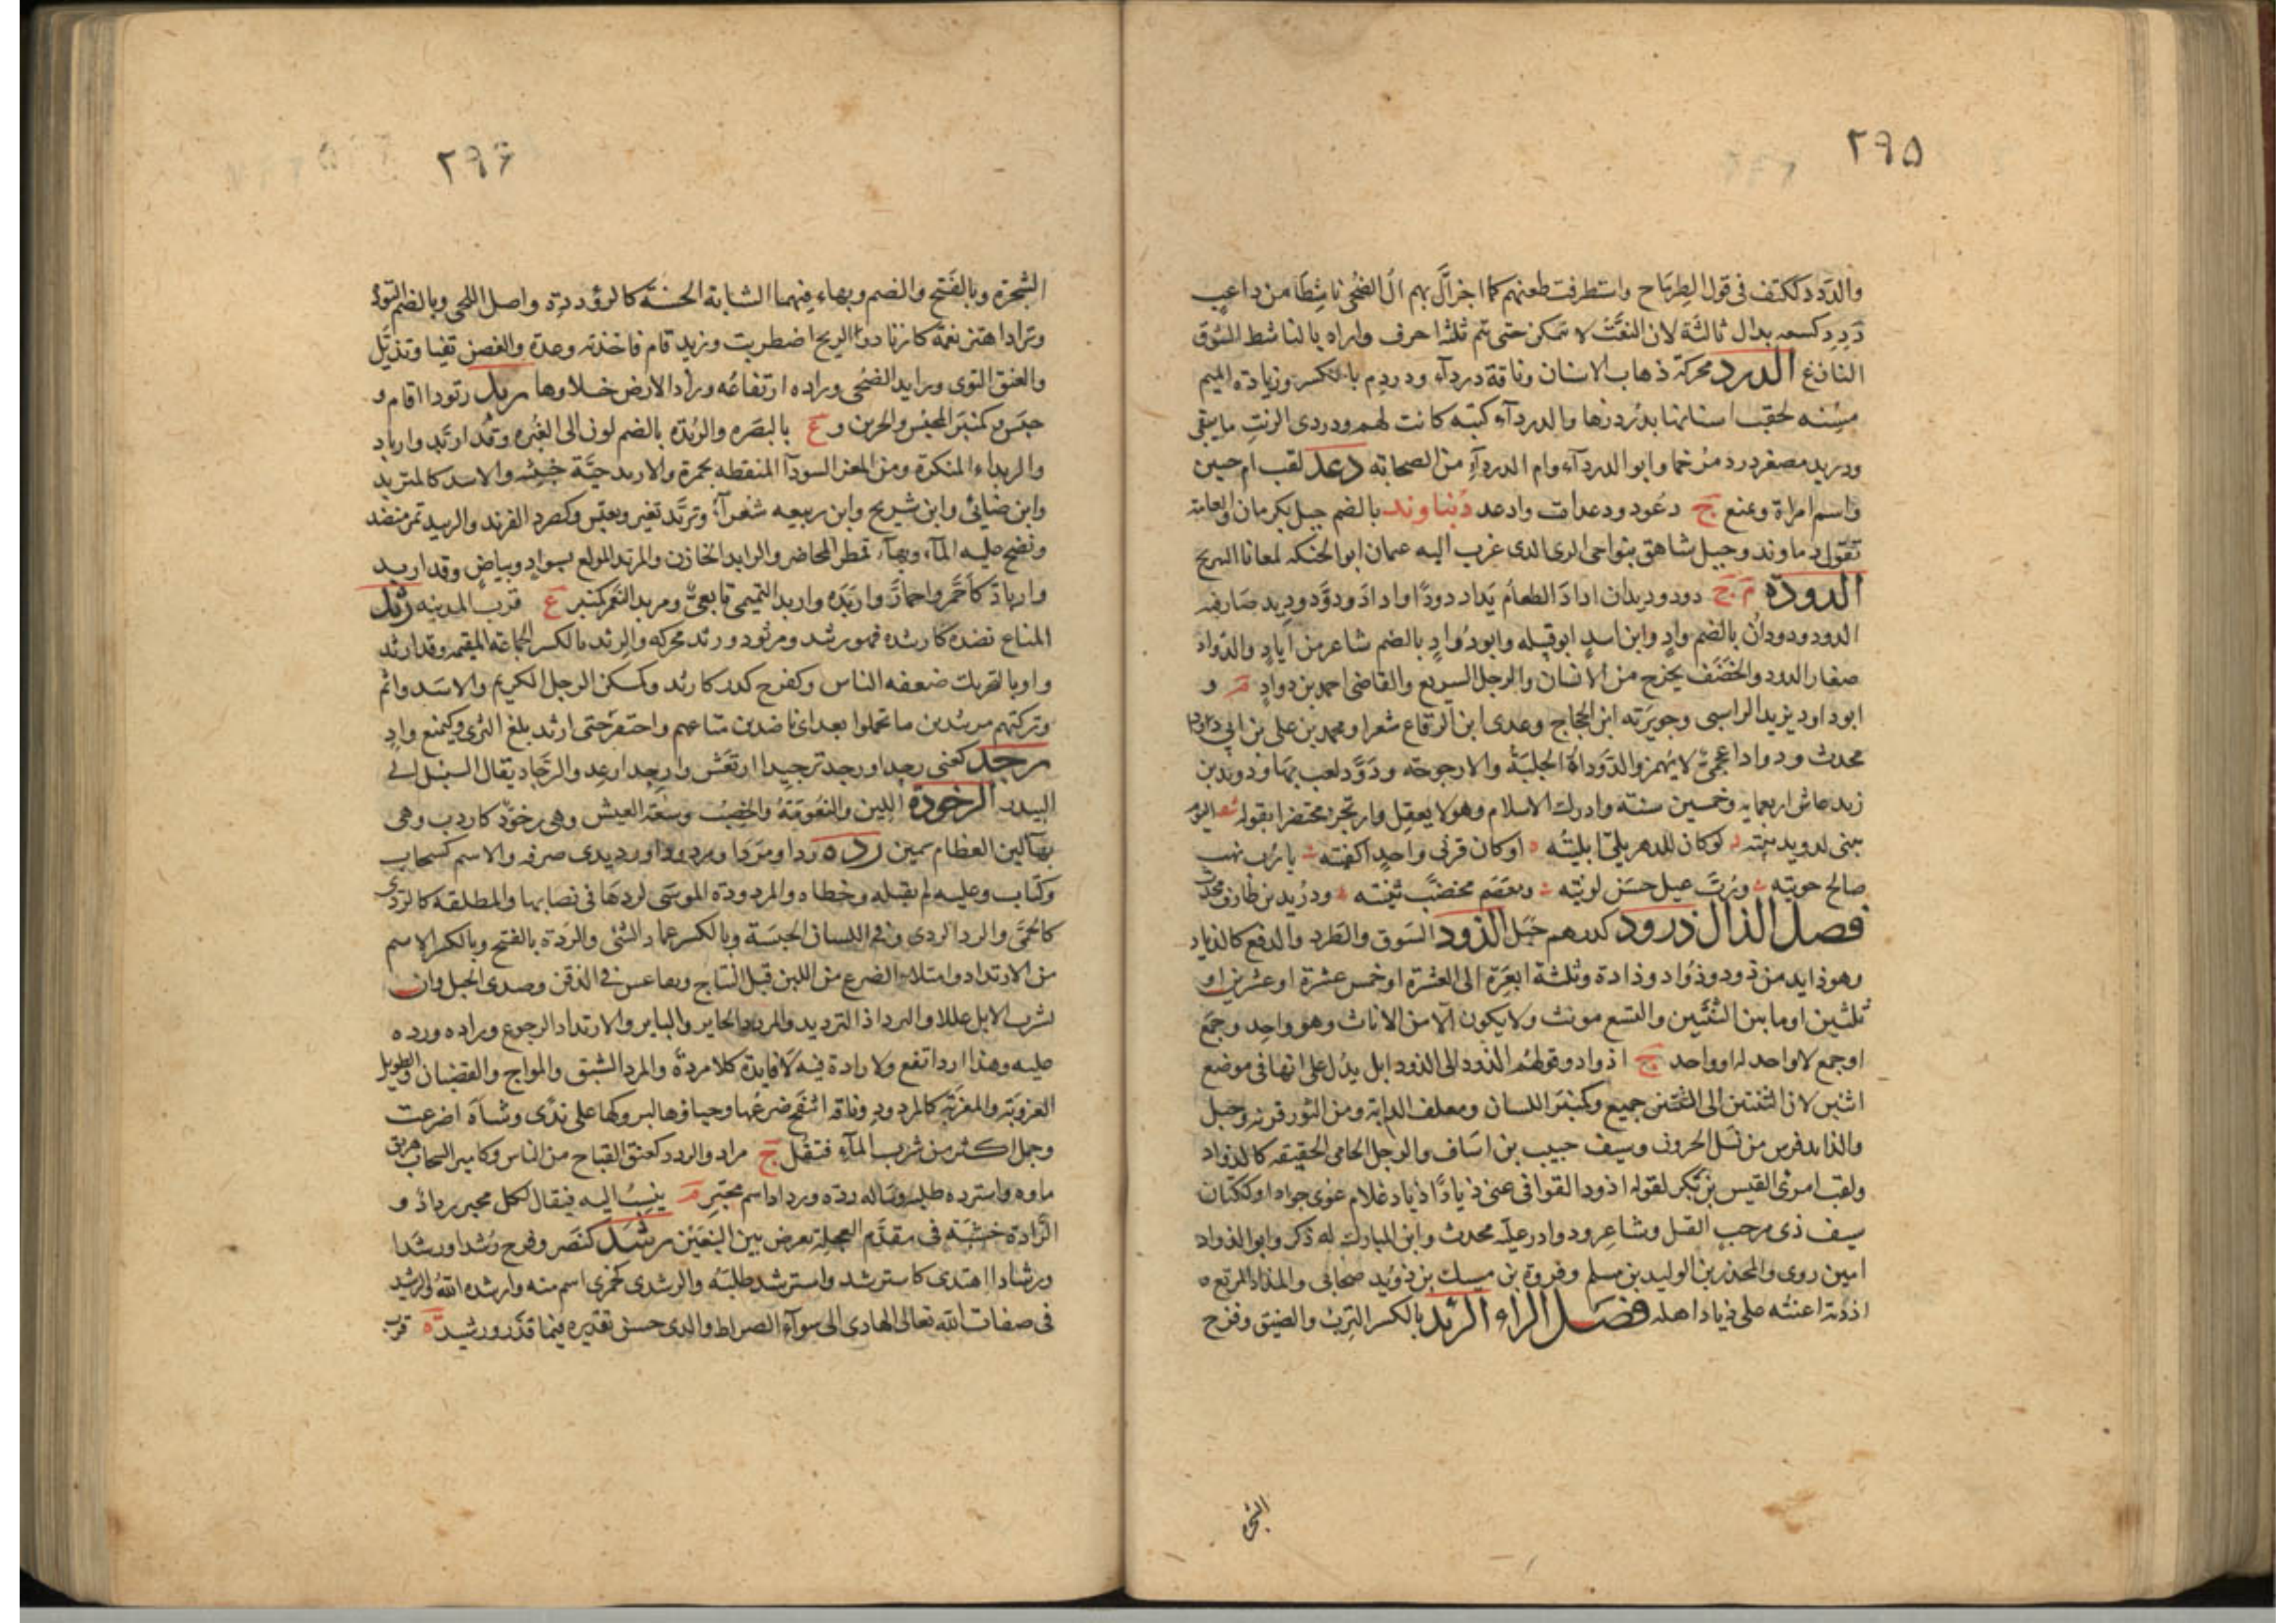 ٢٩٥
والددد ككتف فى قول الطرماح واستطرفت طعنهم كما اخزأل بهم ال الضحى ناشطا من داعب
ددد كسعه بدال ثالثة لان النعت لا تمكن حتى تتم ثلثة احرف واراه بالناشط الشوق
النازع الدرد محركة ذهاب الاسنان وناقة درداء ودردم بالكسر وزيادة الميم
مسنه لحقت اسنانها بدردرها والدرداء كتبه كانت لهم ودردى الزيت ما يبقى
ودريد مصغر درد مرخما وابو الدرداء وام الدرداء من الصحابه دعد لقب ام حبين
واسم امراة ويمنع ج دعود ودعدات وادعد دنباوند بالضم جبل بكرمان والعامة
تقول دماوند وجبل شاهق بنواحى الرى الذى غرب اليه عمان ابو الحنكه لمعانا السريح
الدودة م ج دود وديدان اداد الطعام يداد دودا واداد ودود وديد صار فيه
الدود ودودان بالضم واد وابن اسد ابو قبيله وابو دواد بالضم شاعر من اياد والدواد
صغار الدود والخضف يخرج من الانسان والرجل السريع والقاضى احمد بن دواد م و
ابو داود يزيد الراسبى وجويرته ابن الحجاج وعدى ابن الرقاع شعرا ومحمد بن على بن ابى دواد
محدث ودواد اعجمى لا يهمز والدوداة الجلبة والارجوحه ودود لعب بها ودويد بن
زيد عاش اربعمايه وخمسين سنة وادرك الاسلام وهو لا يعقل وارتجز محتضرا بقوله اليوم
يبنى لدويد بيته لو كان للدهر بلى ابليته او كان قرنى واحدا كفيته يا رب نهب
صالح حويته ورب عيل حسن لويته ومعصم مخضب ثنيته ودريد بن طارق محدث
فصل الذال ذرود كدرهم جبل الذود السوق والطرد والدفع كالذياد
وهو ذايد من ذود وذواد وذادة وثلثة ابعرة الى العشرة او خمس عشرة او عشرين او
ثلثين او ما بين الثنتين والتسع مونث ولا يكون الا من الاناث وهو واحد وجمع
او جمع لا واحد له او واحد ج اذواد وقولهم الذود الى الذود ابل يدل على انها فى موضع
اثنين لان الثنتين الى الثنتين جميع وكمنبر اللسان ومعلف الدابة ومن الثور قرنه وجبل
والذايد فرس من نسل الحرون وسيف حبيب بن اساف والرجل الحامى الحقيقه كالذواد
ولقب امرئ القيس بن بكر لقوله اذود القوافى عنى ذيادا ذياد غلام غوى جوادا وككتان
سيف ذى مرحب القيل وشاعر ودواد در علبه محدث وابن المبارك له ذكر وابو الذواد
امين روى والمجذر بن الوليد بن مسلم وفروة بن مسيك بن ذويد صحابى والمذاد المرتع ه
اذدته اعنته على ذياد اهله فصل الراء الرئد بالكسر الترب والضيق وفرخ
الشجرة
٢٩٦
الشجرة وبالفتح والضم وبهاء فيهما الشابة الحسنة كالرؤدة واصل اللحى وبالضم التؤدة
وترادا هتز نعمة كارتاد والريح اضطربت وزيد قام فاخذته وعدة والغصن تفيا وتذيل
والعنق التوى ورايد الضحى وراده ارتفاعه وراد الارض خلاوها ربد ربودا اقام و
حبس وكمنبر المحبس والجرين و ع بالبصره والربده بالضم لون الى الغبره وقد اربد وارباد
والربداء المنكرة ومن المعز السوداء المنقطه بحمرة والاربد حية خبيثه والاسد كالمتربد
وابن ضبابى وابن شريح وابن ربيعه شعراء وتربد تغير وتعبس وكصرد الفرند والربيد تمر منضد
ونضح عليه الماء وبهاء قمطر المحاضر والرابد الخازن والمربد المولع بسواد وبياض وقد اربد
وارباد كاحمر واحمار واربده واربد التميمى تابعى ومربد النعم كمنبر ع قرب المدينه رثد
المتاع نضده كارثده فهو رثيد ومرثود ورثد محركه والرثد بالكسر الجماعه المقيمه وقد ارثد
واوبالتحريك ضعفه الناس وكفرح كدر كارثد وكمسكن الرجل الكريم والاسد واثم
وتركتهم مرتثدين ما تحملوا بعد اى ناضدين متاعهم واحتفر حتى ارثد بلغ الثرى وكيمنع واد
رجد كعنى رجدا ورجد ترجيدا ارتعش وارجد ارعد والرجاد يقال السنبل الى
البيدر الرخودة اللين والنعومة والخصب وسعة العيش وهى رخود كاردب وهى
بهاء لين العظام سمين رده ردا ومردا ومردودا ورديدى صرفه والاسم كسحاب
وكتاب وعليه لم يقبله وخطاه والمردودة الموسى لردها فى نصابها والمطلقه كالردى
كالحمى والرد الردى وفى اللسان الحبسة وبالكسر عماد الشئ والردة بالفتح وبالكسر الاسم
من الارتداد وامتلاء الضرع من اللبن قبل النتاج وتقاعس فى الذقن وصدى الجبل وان
تشرب الابل عللا والترداد الترديد والمردد الحاير والباير والارتداد الرجوع وراده ورده
عليه وهذا ارد انفع ولا رادة فيه لا فايدة كلا مردة والمرد الشبق والمواج والغضبان والطويل
العزوبة والعزبة كالمردود وناقه انتفخ ضرعها وحياؤها لبروكها على ندى وشاة اضرعت
وجمل اكثر من شرب الماء فثقل ج مراد والردد كعنق القباح من الناس وكامير السحاب هريق
ماوه واسترده طلبه وساله رده ورداد اسم مجبر م ينسب اليه فيقال لكل مجبر رداد و
الرادة خشبة فى مقدم العجلة تعرض بين النبعين رشد كنصر وفرح رشدا ورشدا
ورشادا اهتدى كاسترشد واسترشد طلبه والرشدى كجمزى اسم منه وارشده الله والرشيد
فى صفات الله تعالى الهادى الى سواء الصراط والذى حسن تقديره فيما قدر ورشيد ة قرب